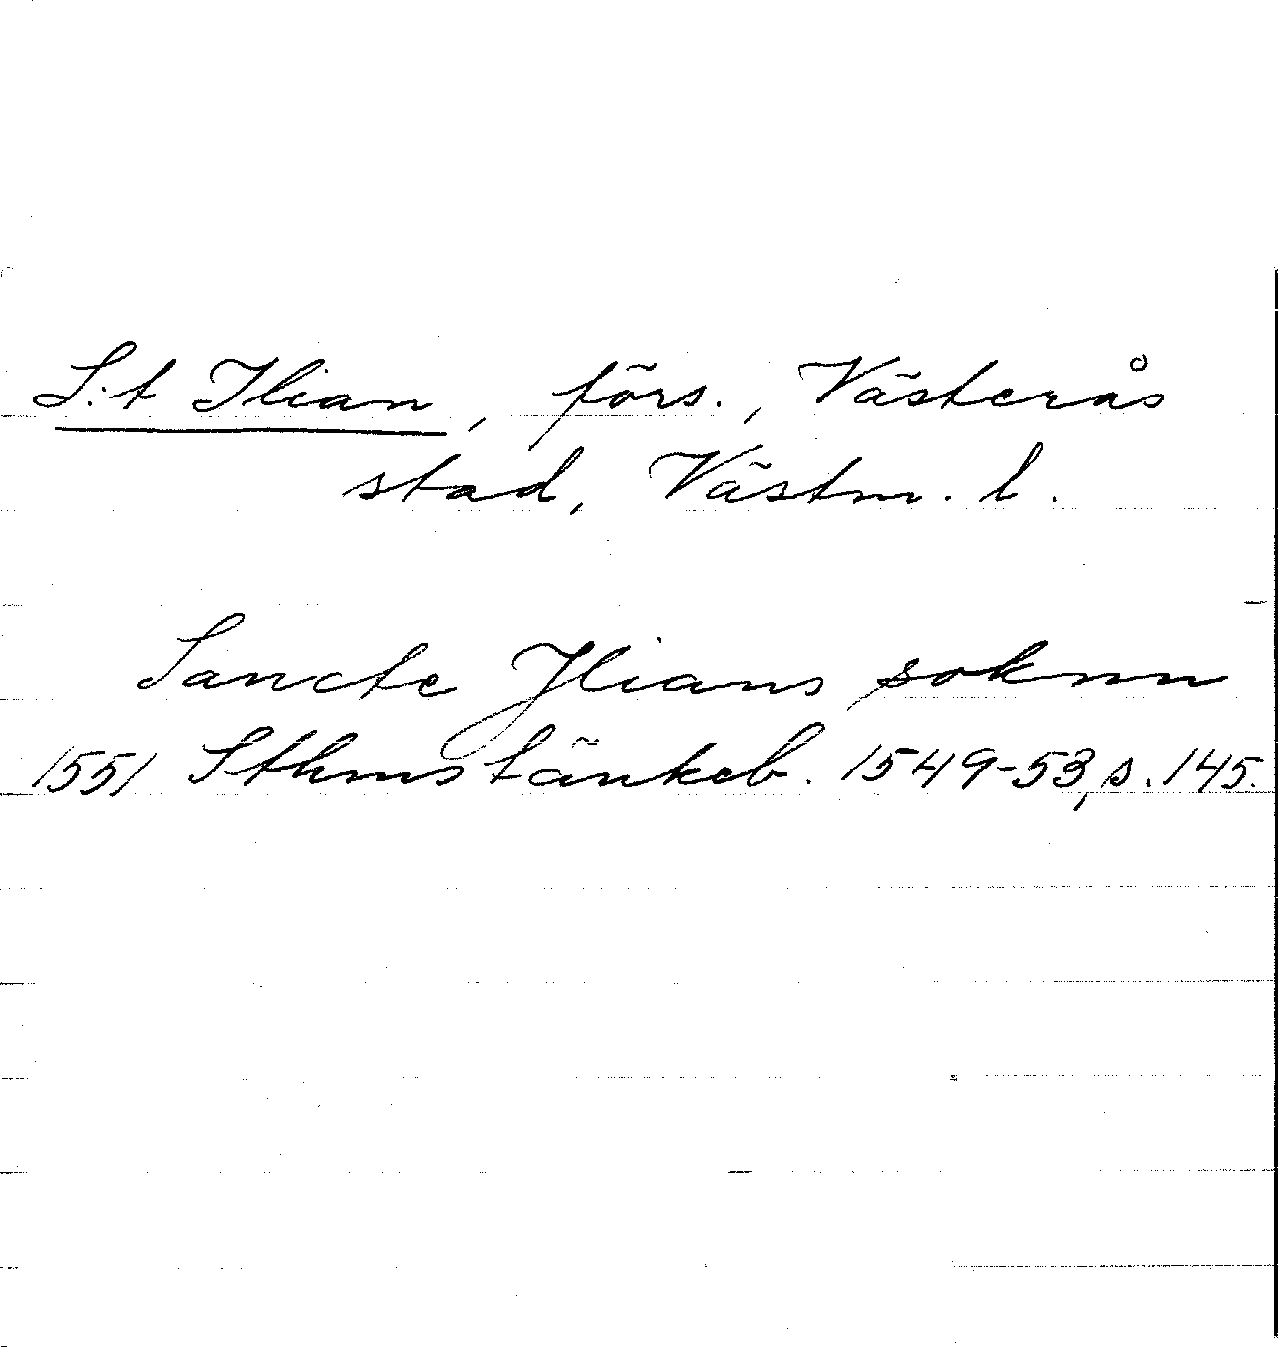 S:t Ilian, förs., Västerås
stad, Västm. l.
Sancte Jlians soknn
1551 Sthms tänkeb. 1549-53, s. 145.